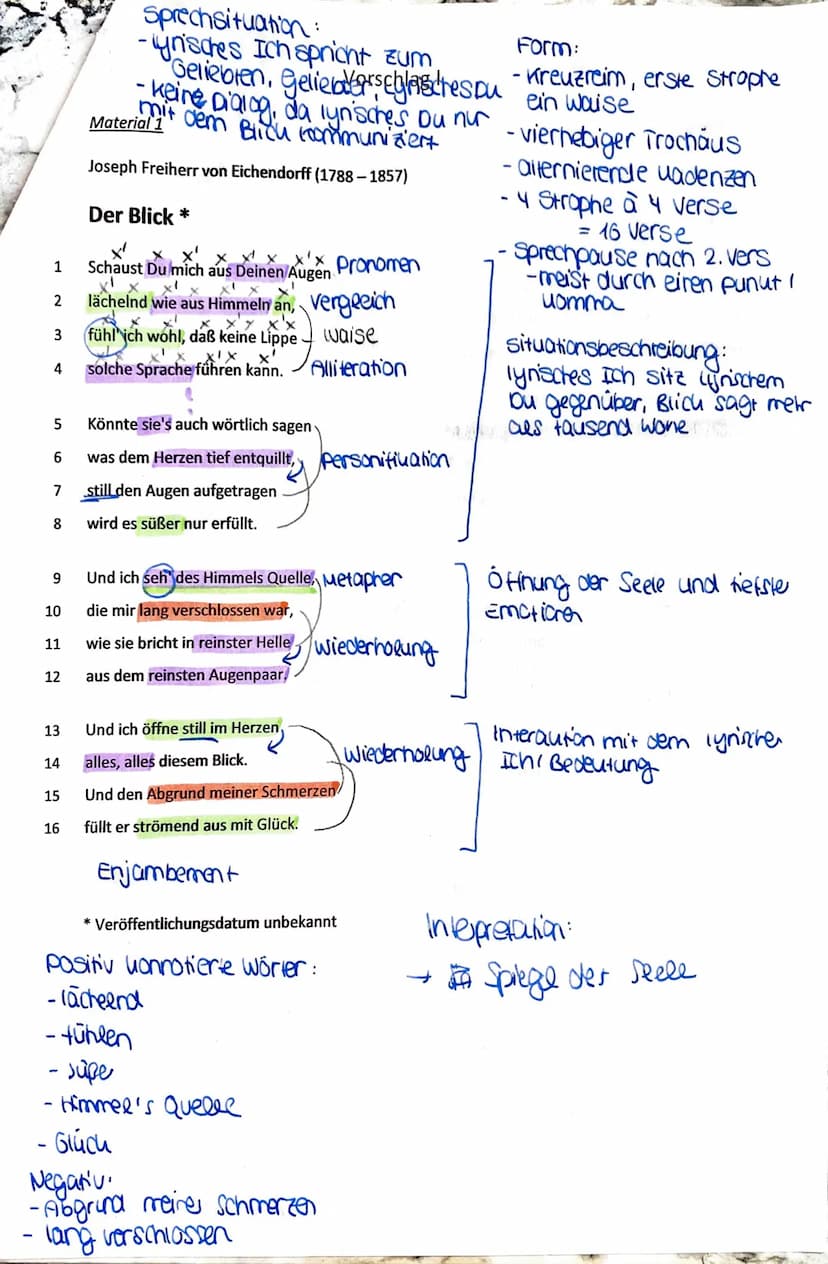 Sprechsituation:
- lyrisches Ich spricht zum
Geliebten, Geliebter, Lyrisches Du
- keine Dialog, da lyrisches Du nur
mit dem Blick kommuniziert
Vorschlag
Material 1
Joseph Freiherr von Eichendorff (1788 – 1857)
Der Blick *
1 Schaust Du mich aus Deinen Augen Pronomen
2 lächelnd wie aus Himmeln an, Vergleich
3 fühl' ich wohl, daß keine Lippe Waise
4 solche Sprache führen kann. Alliteration
5 Könnte sie's auch wörtlich sagen
6 was dem Herzen tief entquillt, Personifikation
7 still den Augen aufgetragen
8 wird es süßer nur erfüllt.
9 Und ich seh' des Himmels Quelle, Metapher
10 die mir lang verschlossen war,
11 wie sie bricht in reinster Helle Wiederholung
12 aus dem reinsten Augenpaar.
13 Und ich öffne still im Herzen
14 alles, alles diesem Blick. Wiederholung
15 Und den Abgrund meiner Schmerzen
16 füllt er strömend aus mit Glück.
Enjambement
* Veröffentlichungsdatum unbekannt
Form:
- Kreuzreim, erste Strophe
ein Waise
- vierhebiger Trochäus
- alternierende Kadenzen
- 4 Strophe à 4 Verse
= 16 Verse
- Sprechpause nach 2. Vers
- meist durch einen Punkt /
Komma
Situationsbeschreibung:
lyrisches Ich sitz lyrischem
Du gegenüber, Blick sagt mehr
als tausend Worte
Öffnung der Seele und tiefste
Emotionen
Interaktion mit dem lyrischen
Ich / Bedeutung
Interpretation:
→ Spiegel der Seele
Positiv konnotierte Wörter:
- lächelnd
- fühlen
- süße
- Himmel's Quelle
- Glück
Negativ:
- Abgrund meines Schmerzen
- lang verschlossen